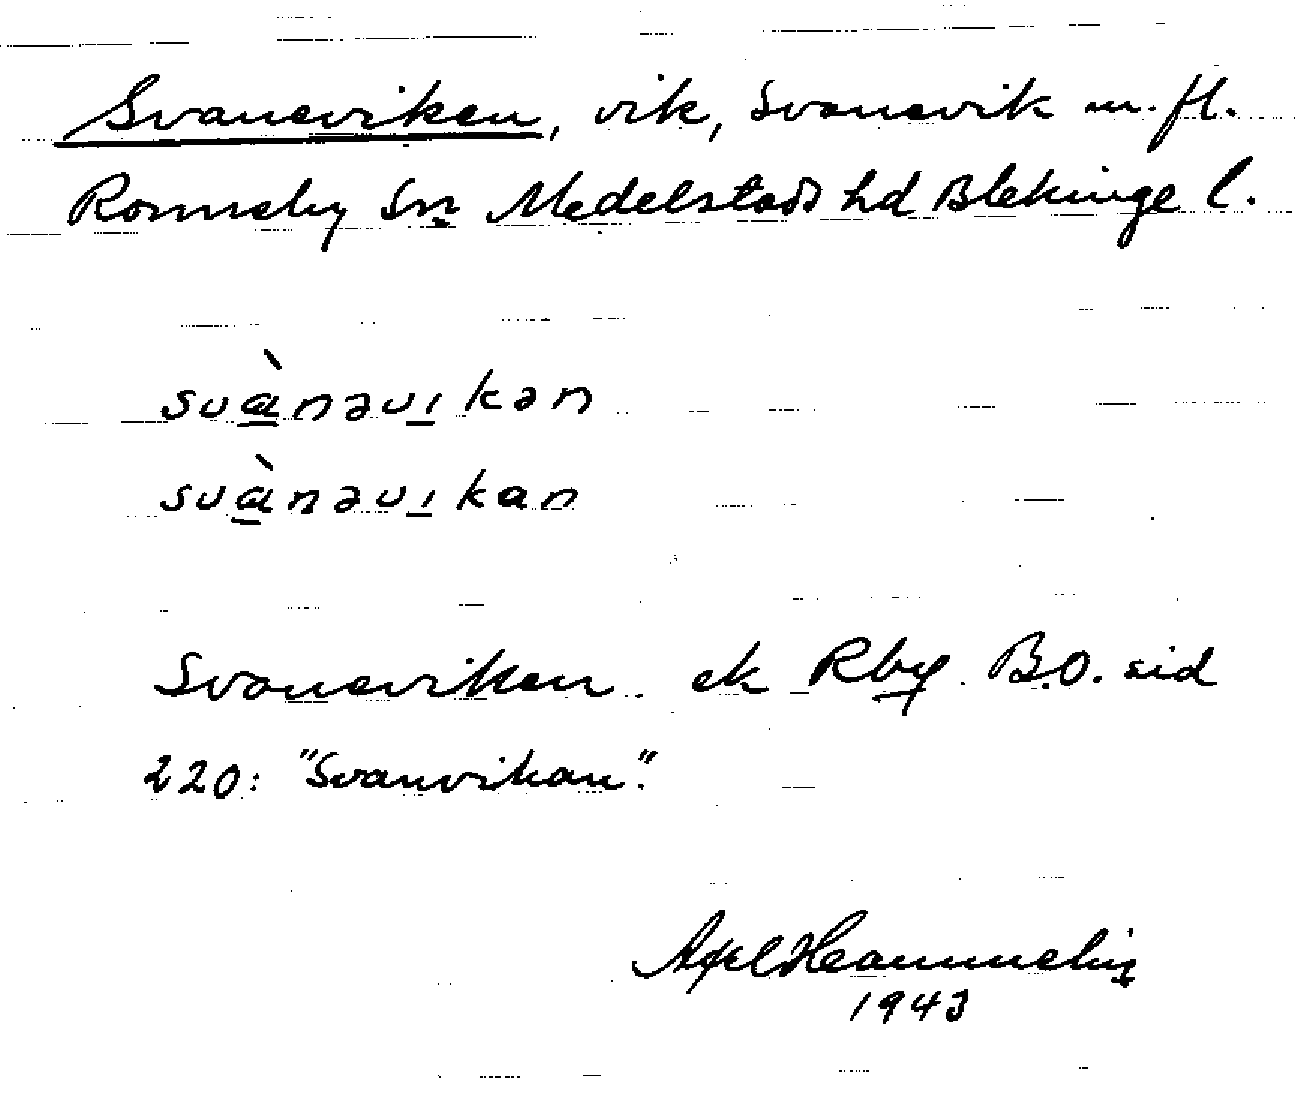 Svaneviken, vik, Svanevik m. fl.
Ronneby Sn Medelstads hd Blekinge l.
svὰ̠nəvı̠kən
svὰ̠nəvı̠kan
Svaneviken ek Rby B.O. sid
220: "Svanvikan".
Axel
1943